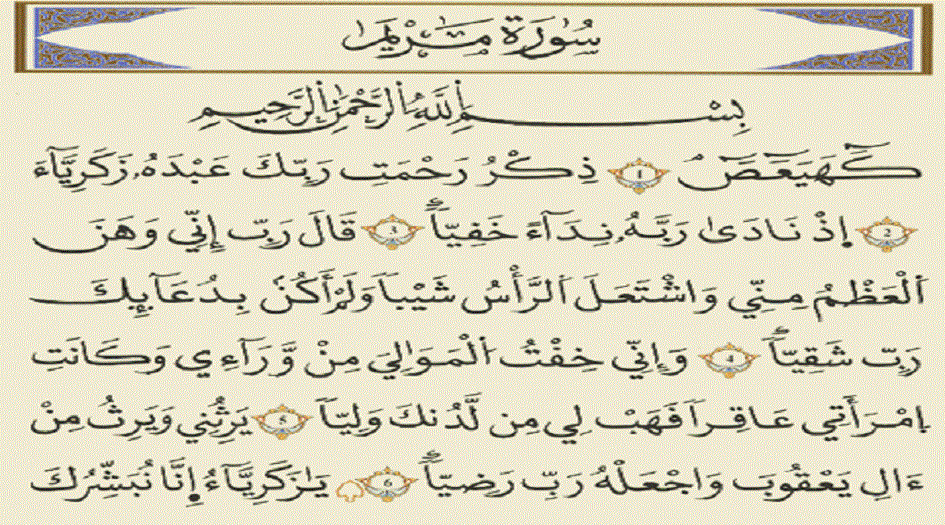 سُورَةُ مَرْيَمَ
بِسْمِ اِ۬للَّهِ اِ۬لرَّحْمَٰنِ اِ۬لرَّحِيمِ
كَٓهَيَعَٓصَٓ 1 ذِكْرُ رَحْمَتِ رَبِّكَ عَبْدَهُۥ زَكَرِيَّآءَ
2 إِذْ نَادَىٰ رَبَّهُۥ نِدَآءً خَفِيّاٗ 3 قَالَ رَبِّ إِنِّي وَهَنَ
اَ۬لْعَظْمُ مِنِّي وَاشْتَعَلَ اَ۬لرَّأْسُ شَيْباٗ وَلَمْ أَكُنۢ بِدُعَآئِكَ
رَبِّ شَقِيّاٗ 4 وَإِنِّي خِفْتُ اُ۬لْمَوَٰلِيَ مِنْ وَّرَآءِي وَكَانَتِ
اِ۪مْرَأَتِي عَاقِراٗ فَهَبْ لِي مِن لَّدُنكَ وَلِيّاٗ 5 يَرِثُنِي وَيَرِثُ مِنْ
ءَالِ يَعْقُوبَ وَاجْعَلْهُ رَبِّ رَضِيّاٗ 6 يَٰزَكَرِيَّآءُ اِ۪نَّا نُبَشِّرُكَ